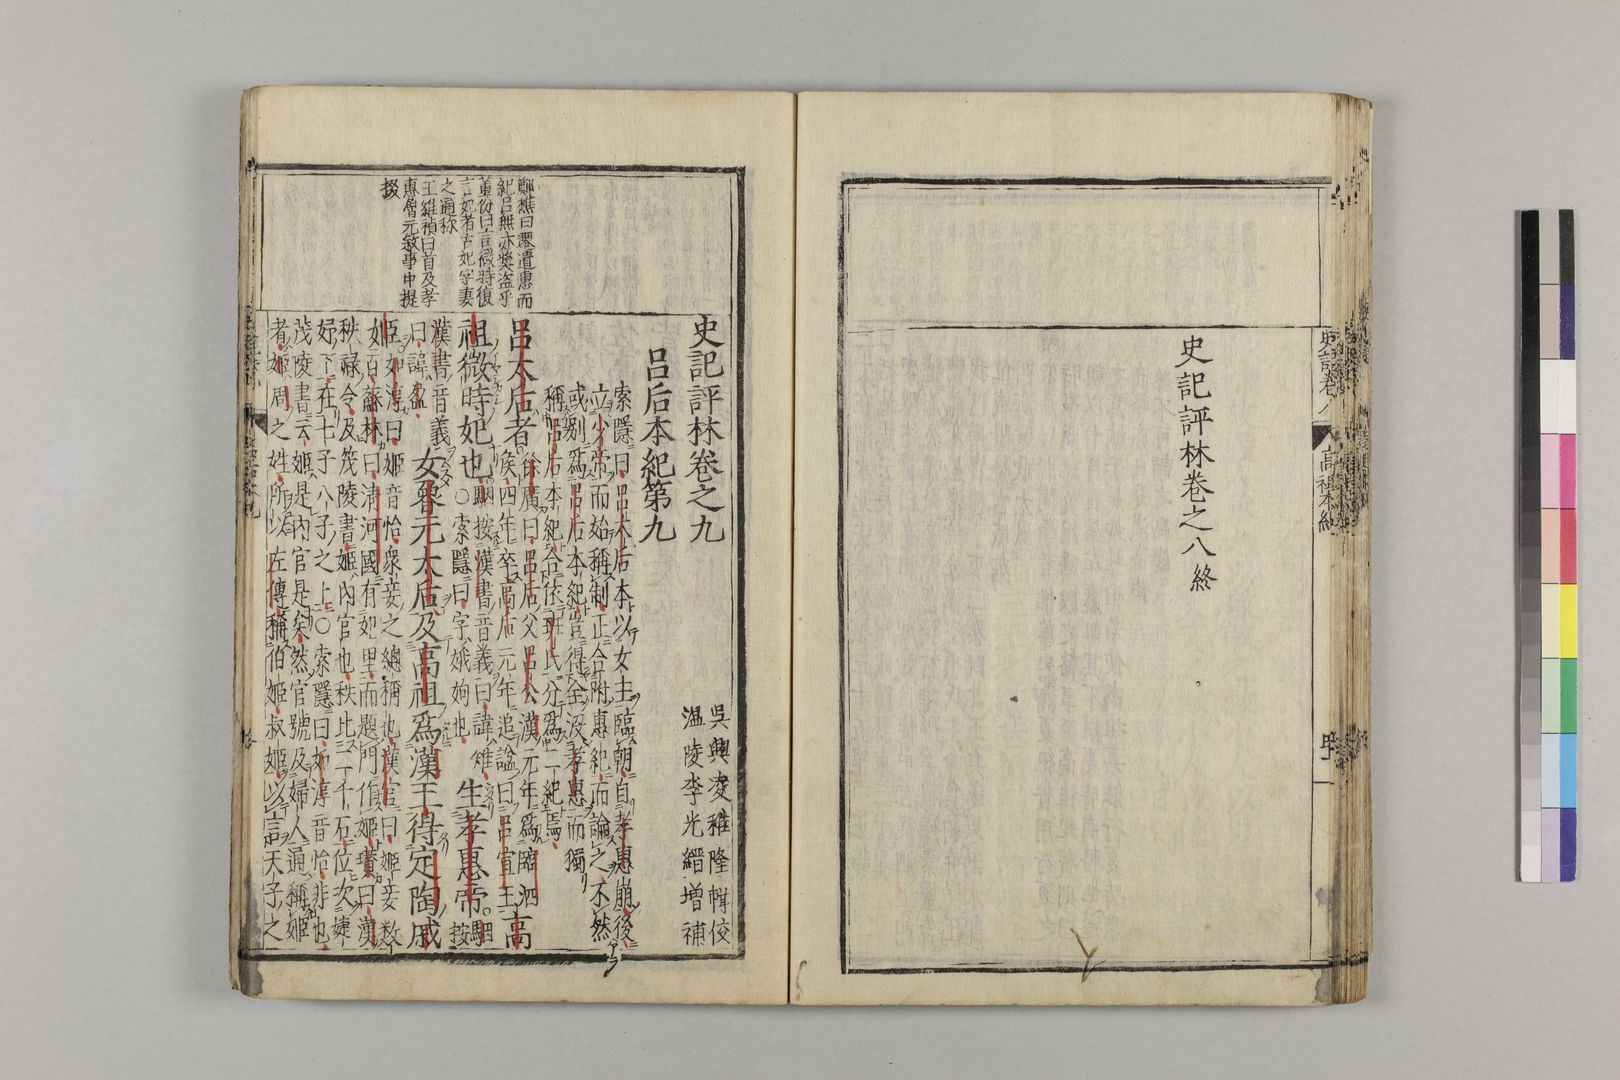 史記卷八
高祖本紀
史記評林卷之八終
史記評林卷之九
吳興凌稚隆輯校
溫陵李光縉增補
呂后本紀第九
索隱曰呂太后本以女主臨朝自孝惠崩後
立少帝而始稱制正合附惠紀而論之不然
或別爲呂后本紀豈得全沒孝惠而獨
稱呂后本紀合依班氏分爲二紀焉
呂太后者
徐廣曰呂后父呂公漢元年爲臨泗
侯四年卒高后元年追謚曰呂宣王
高
祖微時妃也
駰按漢書音義曰諱雉
○索隱曰字娥姁也
生孝惠帝
駰按
漢書音義
曰諱盈
女魯元太后及高祖爲漢王得定陶戚
姬
如淳曰姬音怡衆妾之總稱也漢官曰姬妾數
百蘇林曰清河國有妃里而題門作姬瓚曰漢
秩祿令及茂陵書姬內官也秩比二千石位次婕
妤下在七子八子之上○索隱曰如淳音怡非也
茂陵書云姬是內官是矣然官號及婦人通稱姬
者姬周之姓所以左傳稱伯姬叔姬以言天子之
鄭樵曰遷遺惠而
紀呂無亦獎盜乎
董份曰言微時復
言妃者古妃字妻
之通称
王維禎曰首及孝
惠魯元敘事中提
掇